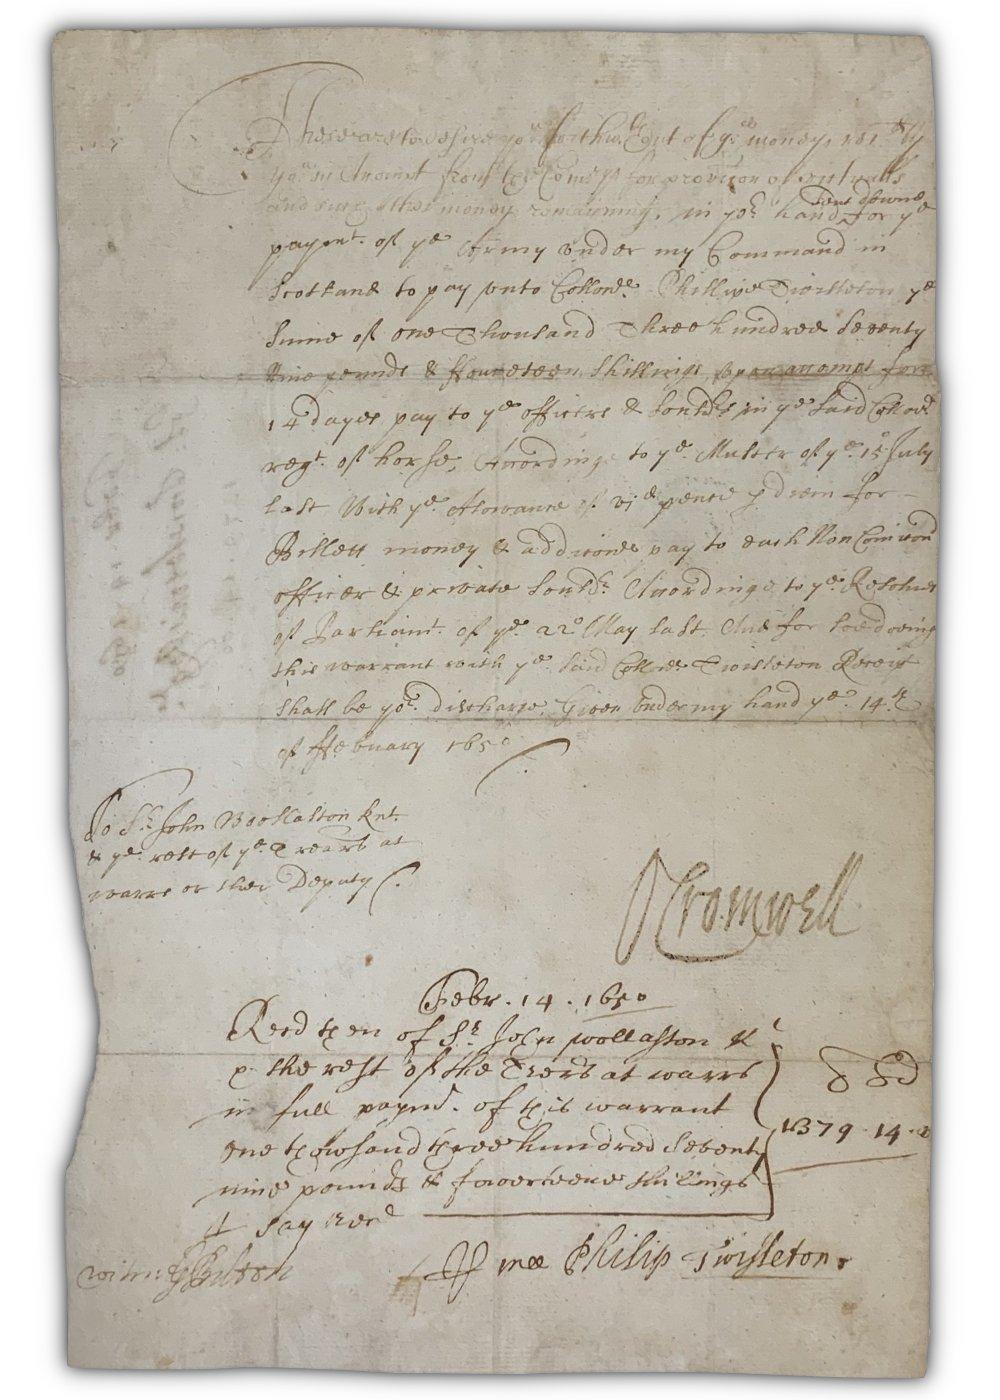 These are to desire you forthwth. Out of ye. moneys
you in Accompt from the Comrs for provicon of victualls
and such other moneys remaineing, in yor. hands sent downe for ye
payment. of ye Army vnder my Command in
Scotland to pay vnto Collonell. Phillipe Twisleton ye
Summe of one Thousand Three hundred Seventy
Nine pounds & ffoureteen Shillings, vpon accompt for
14 dayes pay to ye officers & Souldrs in ye said Collonls
regt. of horse, Accordinge to ye. Muster of ye. 15o July
last With ye. Alowance of vjd pence p diem for
Billett money & addiconall pay to each Non Comicond
officer & private Souldr. Accordinge to ye. Resolves
of Parliamt. of ye. 22o May last. And for soe doeing
this warrant with ye. said Collonls Twisleton Receipt
shall be yor. discharge. Given vnder my hand ye. 14th
of ffebuary 1650
To Sr. John Woollaston Knt.
& ye. rest of ye. Trears at
warre or their Deputy
O Cromwell
Febr. 14. 1650
Recd then of Sr John Wollaston K
& the rest of the Trers at warrs
in full paymt. of this warrant
one thowsand three hundred Seventy
nine pounds & fowerteene shillings
I say Recd
1379 - 14 -
p mee Philip Twisleton.